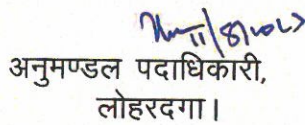 11/8/2023
अनुमण्डल पदाधिकारी,
लोहरदगा।